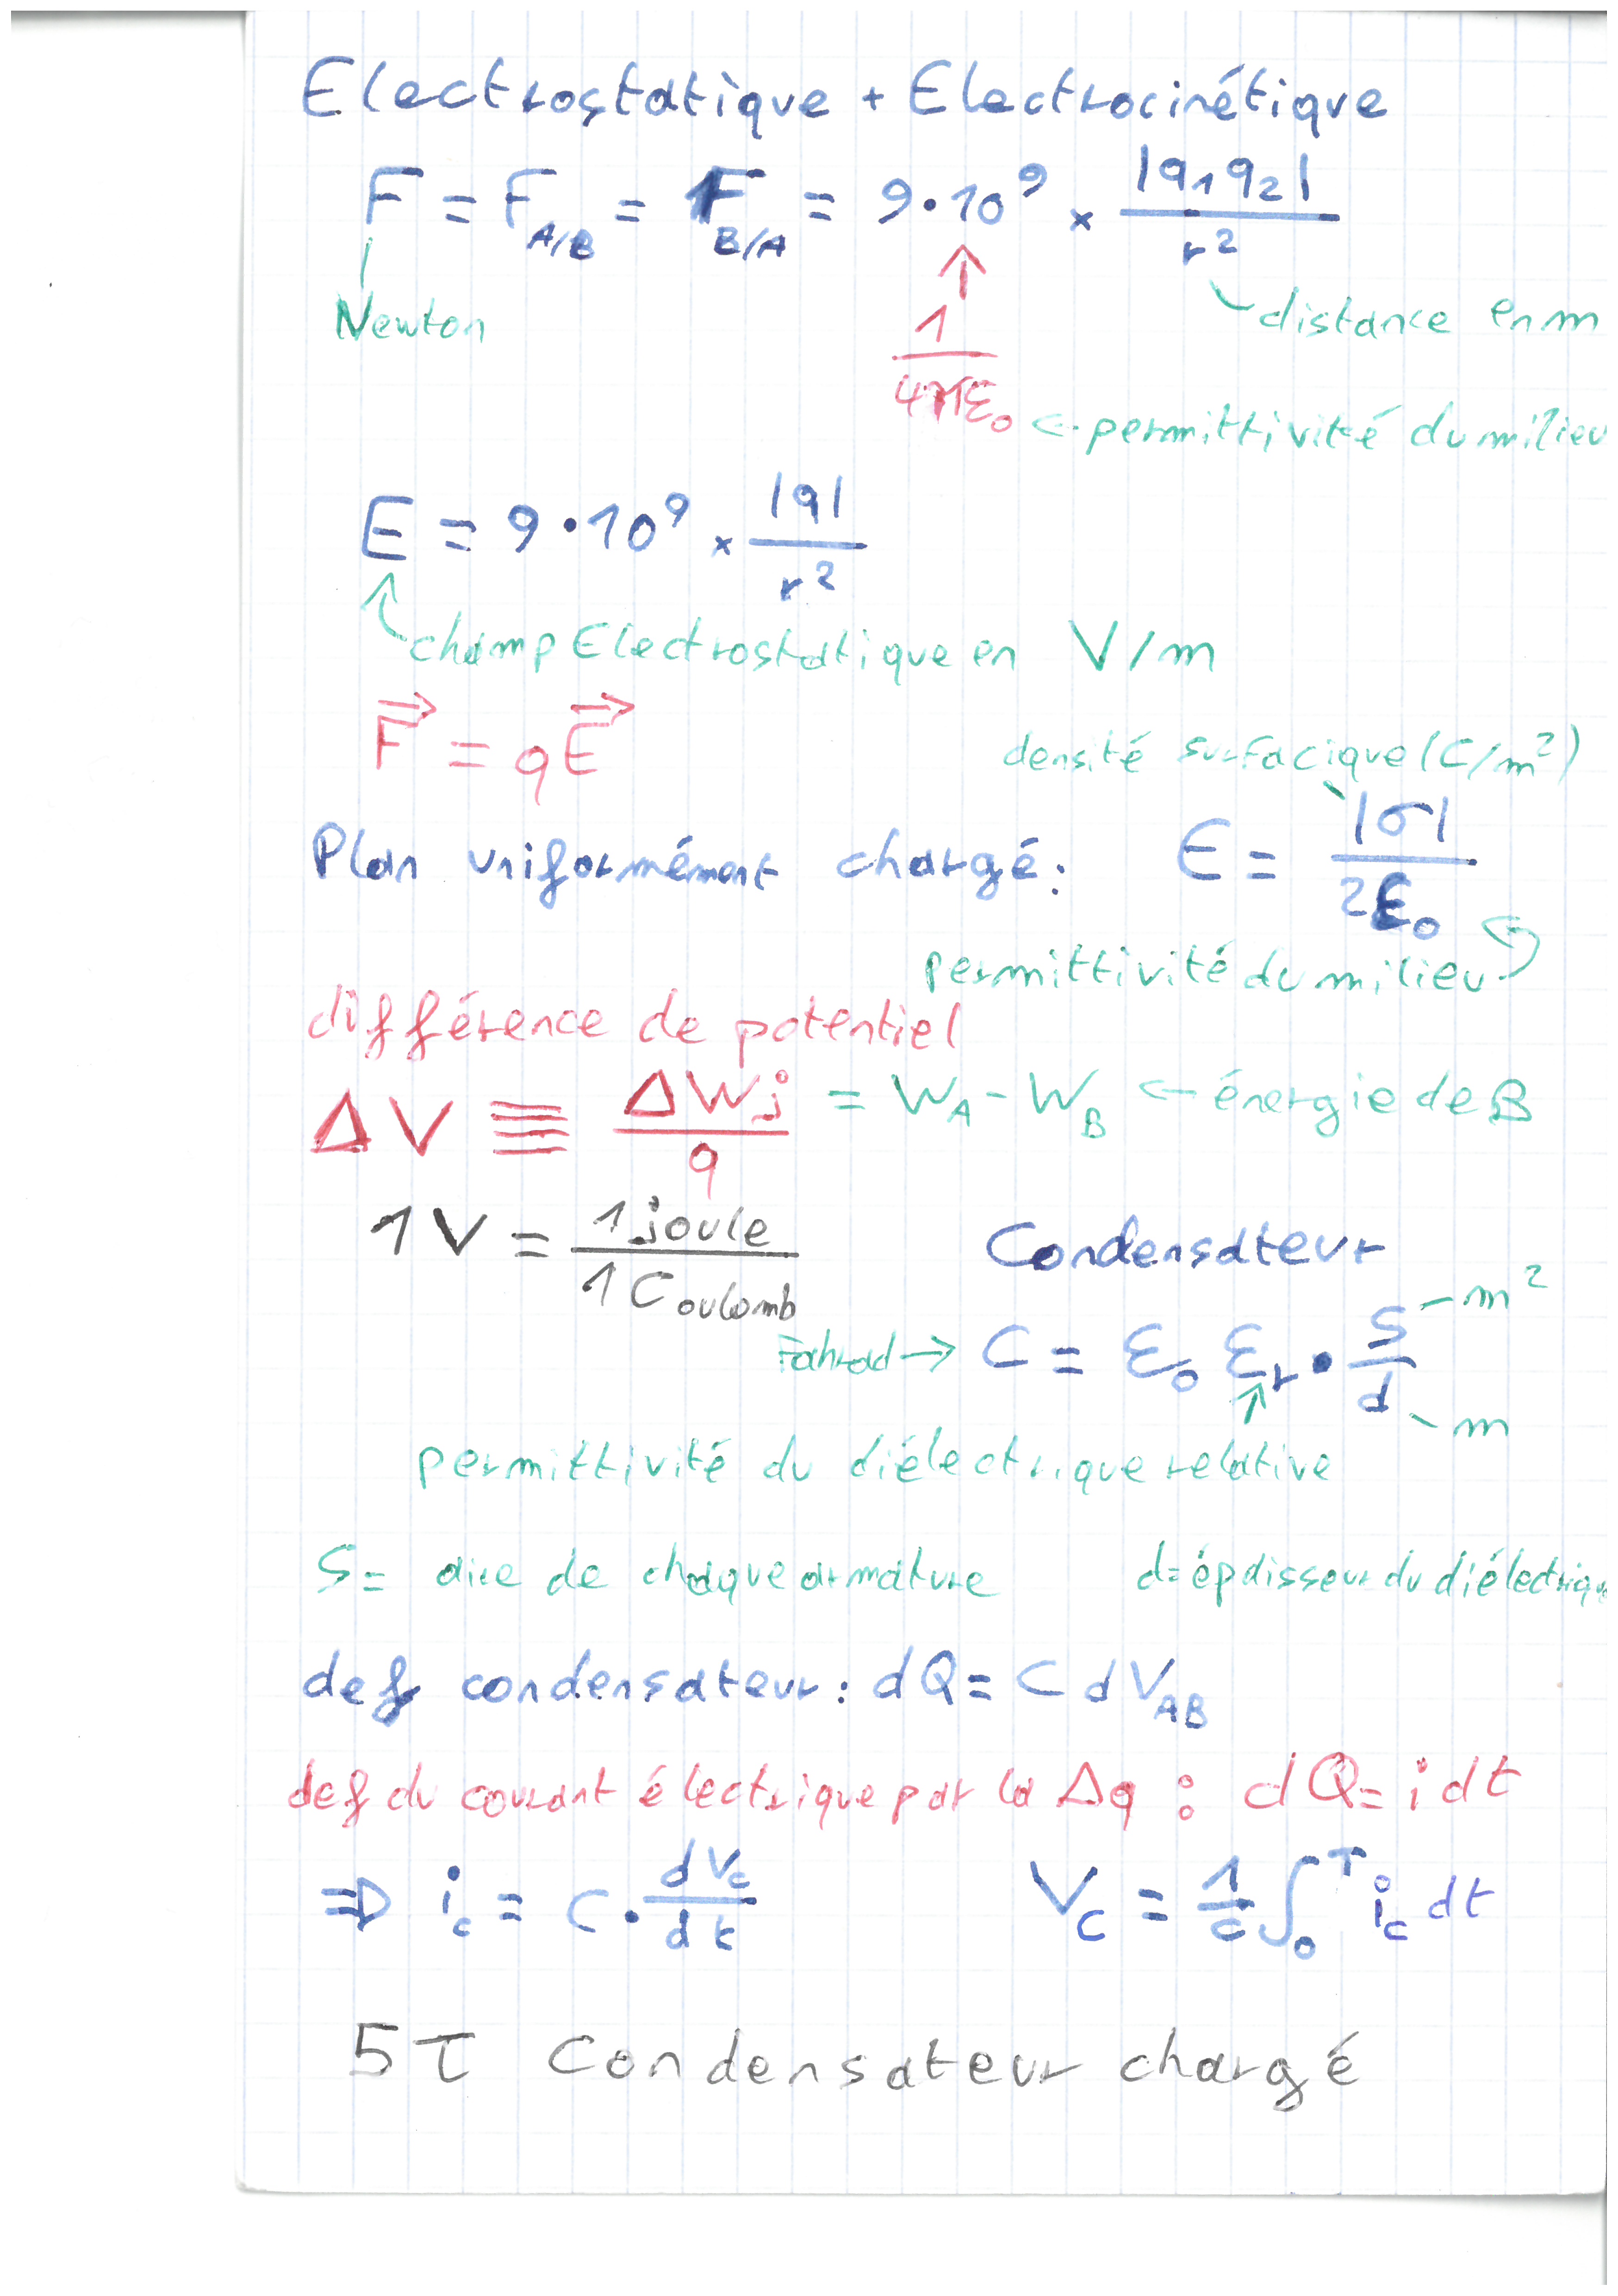 Electrostatique + Electrocinétique
F = F_{A/B} = F_{B/A} = 9·10⁹ × |q₁q₂| / r²
Newton
distance en m
1 / 4πε₀ ← permittivité du milieu
E = 9·10⁹ × |q| / r²
champ Electrostatique en V/m
F⃗ = qE⃗
densité surfacique (C/m²)
Plan uniformément chargé : E = |σ| / 2ε₀
permittivité du milieu
différence de potentiel
ΔV ≡ ΔWj / q = W_A - W_B ← énergie de B
1V = 1 joule / 1 Coulomb
Condensateur
Fahrad → C = ε₀ εr · S / d
- m²
- m
permittivité du diélectrique relative
S = aire de chaque armature d = épaisseur du diélectrique
def condensateur : dQ = C dV_{AB}
def du courant électrique par la Δq : dQ = i dt
⇒ i_c = C · dV_c / dt V_c = 1/C ∫₀ᵀ i_c dt
5τ Condensateur chargé